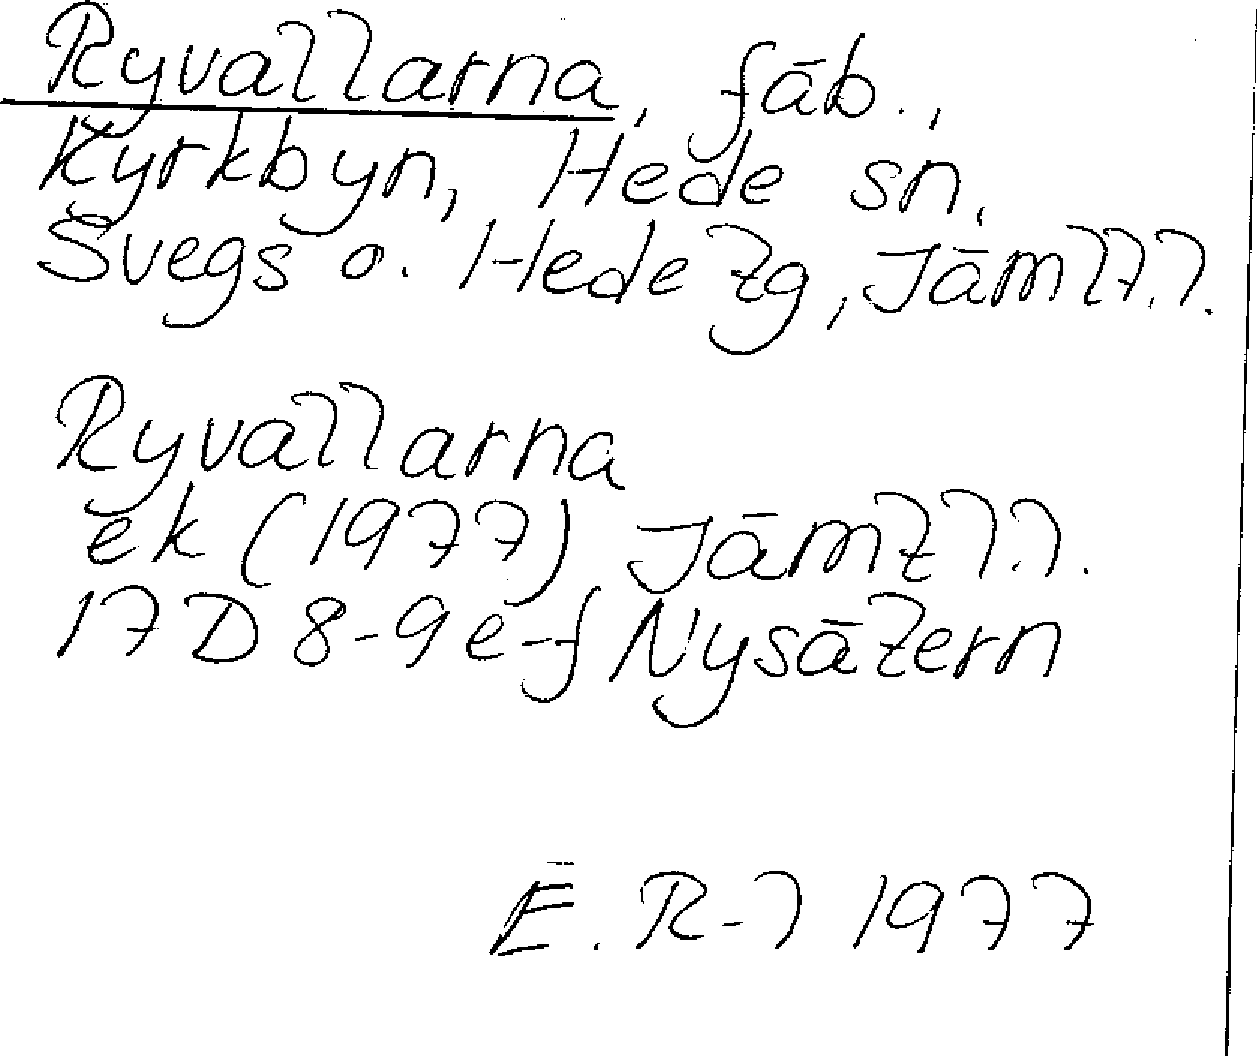 Ryvallarna, fäb.,
Kyrkbyn, Hede sn,
Svegs o. Hede tg, Jämtl.l.
Ryvallarna
ek (1977) Jämtl.l.
17D 8-9 e-f Nysätern
E. R-l 1977